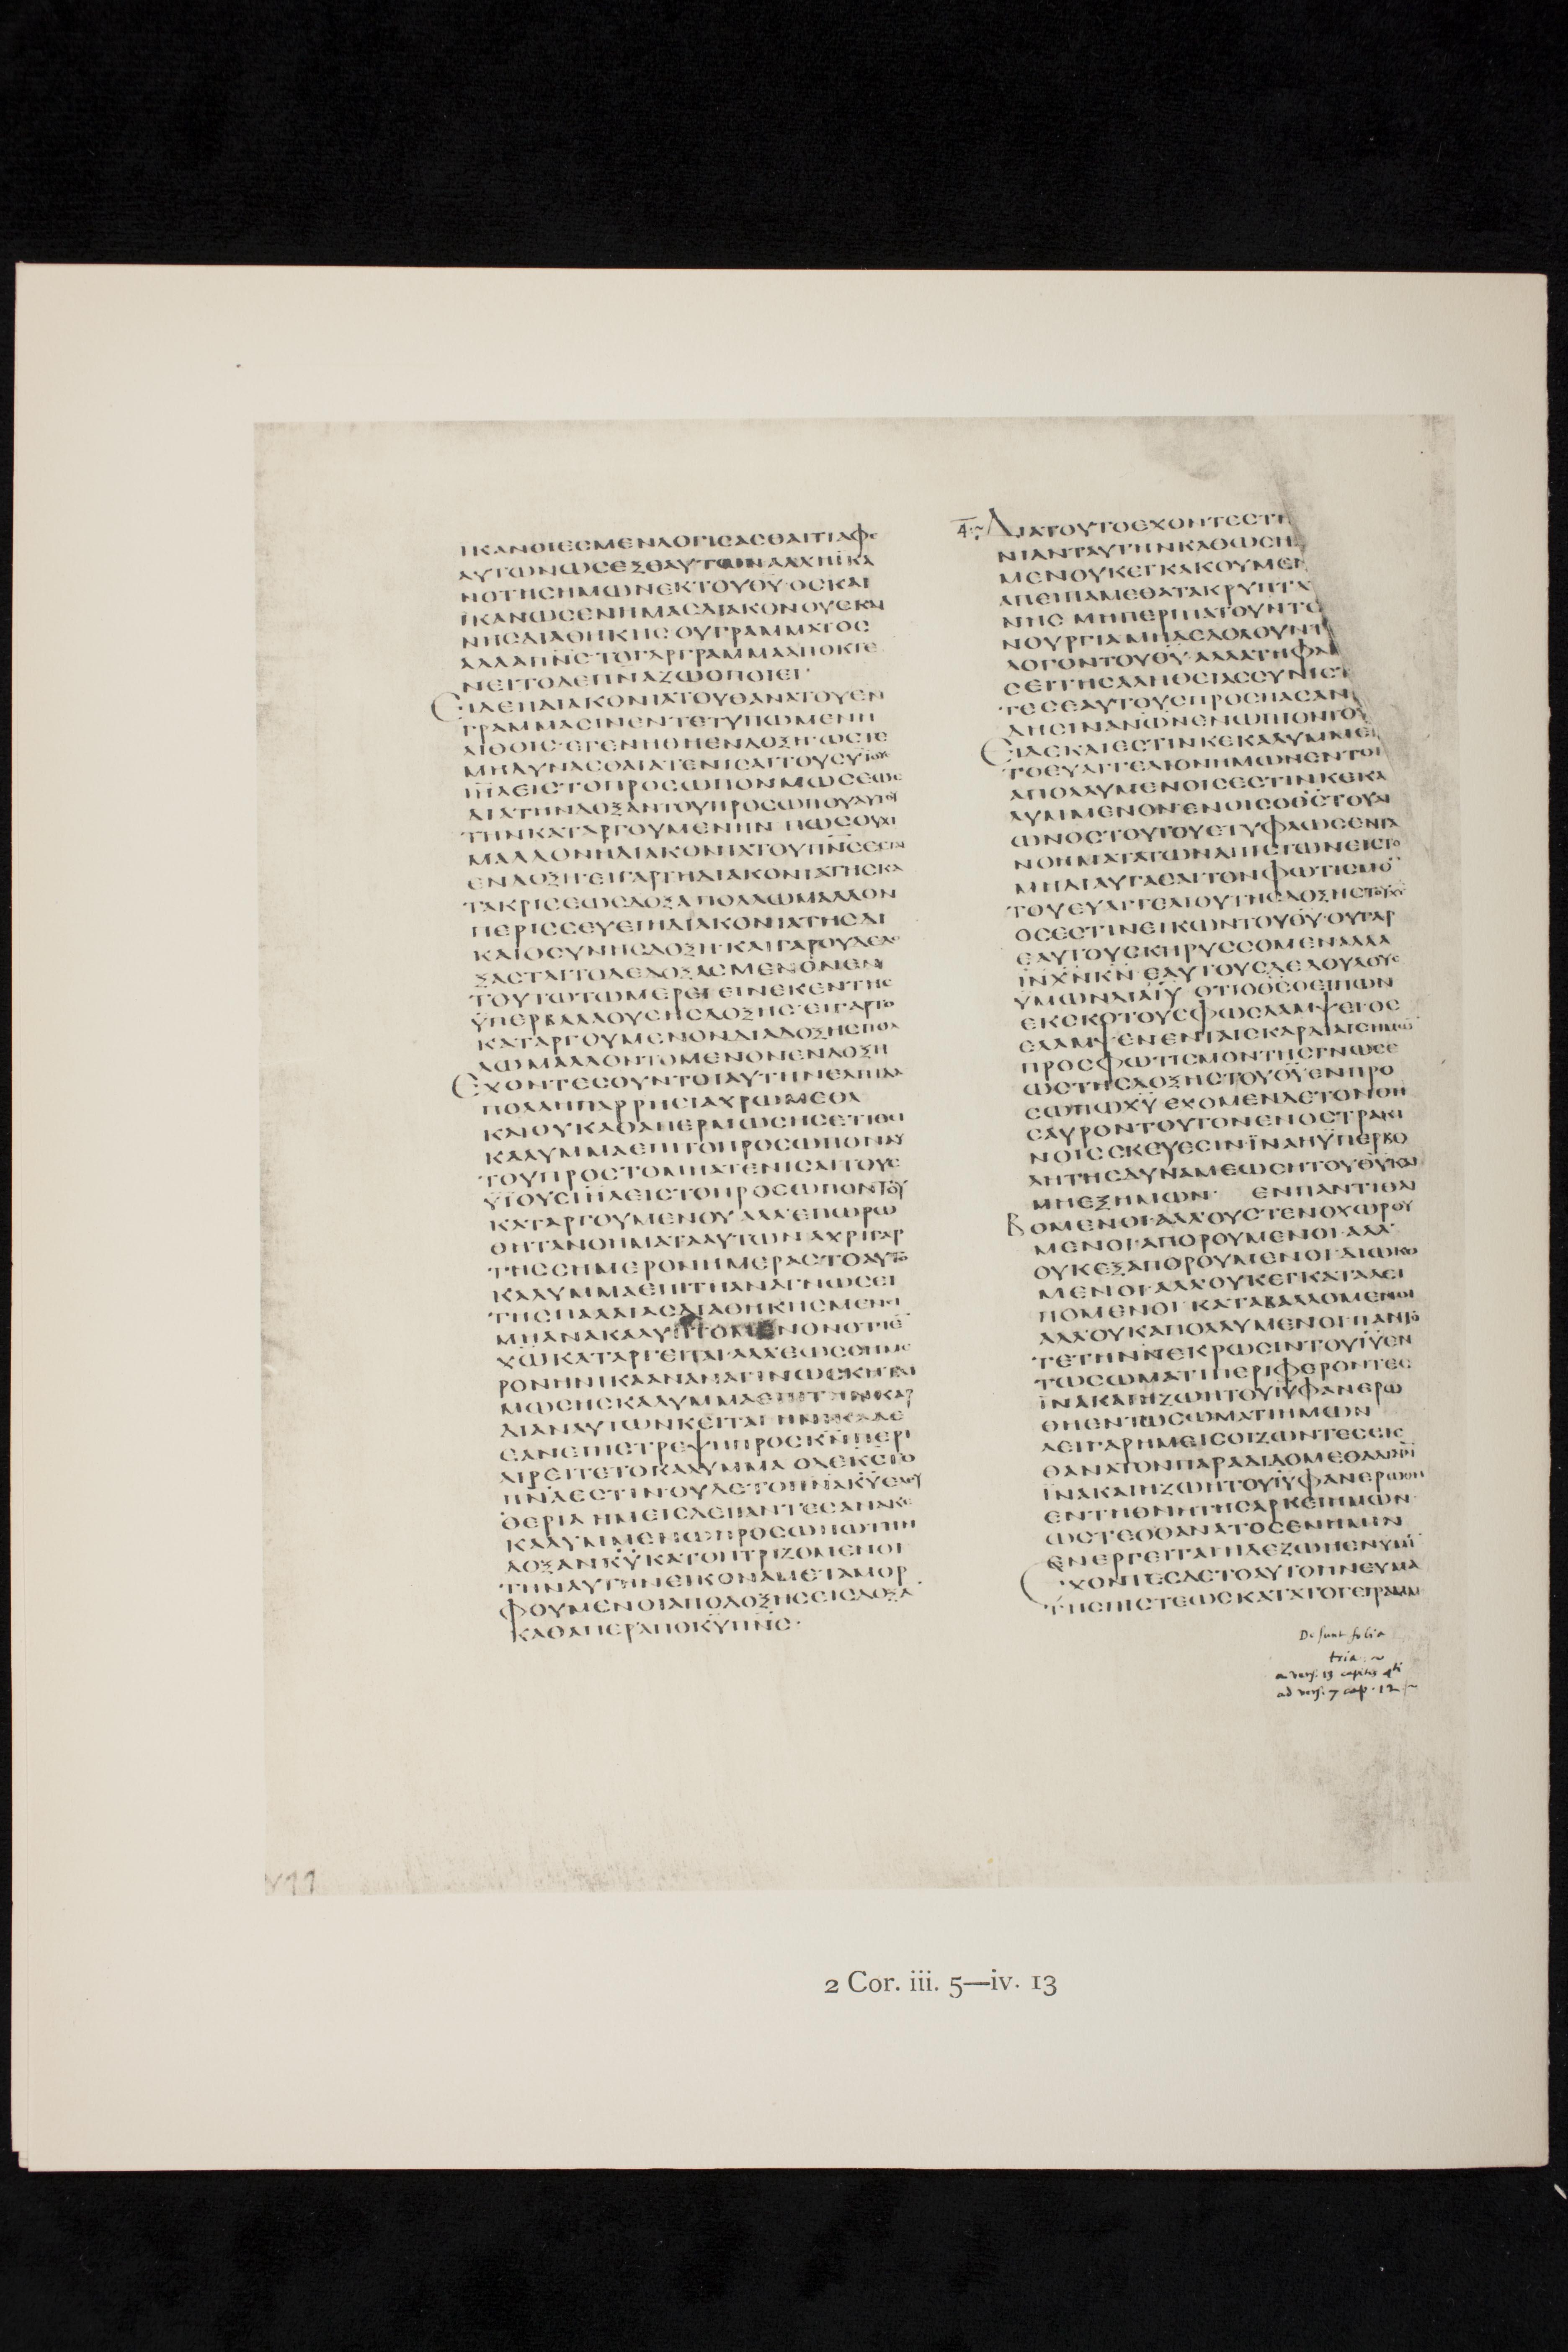 ΙΚΑΝΟΙΕϹΜΕΝΛΟΓΙϹΑϹΘΑΙΤΙΑΦΕ
ΑΥΤΩΝΩϹΕΞΕΑΥΤΩΝΑΛΛΗΙΚΑ
ΝΟΤΗϹΗΜΩΝΕΚΤΟΥΘ̅Υ̅·ΟϹΚΑΙ
ΙΚΑΝΩϹΕΝΗΜΑϹΔΙΑΚΟΝΟΥϹΚΑΙ
ΝΗϹΔΙΑΘΗΚΗϹ ΟΥΓΡΑΜΜΑΤΟϹ
ΑΛΛΑΠ̅Ν̅Ϲ̅ ΤΟΓΑΡΓΡΑΜΜΑΑΠΟΚΤΕ
ΝΕΙΤΟΔΕΠ̅Ν̅Α̅ΖΩΟΠΟΙΕΙ·
ΕΙΔΕΗΔΙΑΚΟΝΙΑΤΟΥΘΑΝΑΤΟΥΕΝ
ΓΡΑΜΜΑϹΙΝΕΝΤΕΤΥΠΩΜΕΝΗ
ΛΙΘΟΙϹ·ΕΓΕΝΗΘΗΕΝΔΟΞΗ·ΩϹΤΕ
ΜΗΔΥΝΑϹΘΑΙΑΤΕΝΙϹΑΙΤΟΥϹΥΙΟΥϹ
Ι̅Η̅Λ̅ΕΙϹΤΟΠΡΟϹΩΠΟΝΜΩϹΕΩϹ
ΔΙΑΤΗΝΔΟΞΑΝΤΟΥΠΡΟϹΩΠΟΥΑΥΤΟΥ
ΤΗΝΚΑΤΑΡΓΟΥΜΕΝΗΝ ΠΩϹΟΥΧΙ
ΜΑΛΛΟΝΗΔΙΑΚΟΝΙΑΤΟΥΠ̅Ν̅Ϲ̅ΕϹΤΑΙ
ΕΝΔΟΞΗ·ΕΙΓΑΡΤΗΔΙΑΚΟΝΙΑΤΗϹΚΑ
ΤΑΚΡΙϹΕΩϹΔΟΞΑΠΟΛΛΩΜΑΛΛΟΝ
ΠΕΡΙϹϹΕΥΕΙΗΔΙΑΚΟΝΙΑΤΗϹΔΙ
ΚΑΙΟϹΥΝΗϹΔΟΞΗ·ΚΑΙΓΑΡΟΥΔΕΔΟ
ΞΑϹΤΑΙΤΟΔΕΔΟΞΑϹΜΕΝΟΝΕΝ
ΤΟΥΤΩΤΩΜΕΡΕΙ ΕΙΝΕΚΕΝΤΗϹ
ΫΠΕΡΒΑΛΛΟΥϹΗϹΔΟΞΗϹ·ΕΙΓΑΡΤΟ
ΚΑΤΑΡΓΟΥΜΕΝΟΝΔΙΑΔΟΞΗϹΠΟΛ
ΛΩΜΑΛΛΟΝΤΟΜΕΝΟΝΕΝΔΟΞΗ
ΕΧΟΝΤΕϹΟΥΝΤΟΙΑΥΤΗΝΕΛΠΙΔΑ
ΠΟΛΛΗΠΑΡΡΗϹΙΑΧΡΩΜΕΘΑ
ΚΑΙΟΥΚΑΘΑΠΕΡΜΩϹΗϹΕΤΙΘΕΙ
ΚΑΛΥΜΜΑΕΠΙΤΟΠΡΟϹΩΠΟΝΑΥ
ΤΟΥΠΡΟϹΤΟΜΗΑΤΕΝΙϹΑΙΤΟΥϹ
ΫΙΟΥϹΙ̅Η̅Λ̅ΕΙϹΤΟΠΡΟϹΩΠΟΝΤΟΥ
ΚΑΤΑΡΓΟΥΜΕΝΟΥ ΑΛΛΕΠΩΡΩ
ΘΗΤΑΝΟΗΜΑΤΑΑΥΤΩΝ ΑΧΡΙΓΑΡ
ΤΗϹϹΗΜΕΡΟΝΗΜΕΡΑϹΤΟΑΥΤΟ
ΚΑΛΥΜΜΑΕΠΙΤΗΑΝΑΓΝΩϹΕΙ
ΤΗϹΠΑΛΑΙΑϹΔΙΑΘΗΚΗϹΜΕΝΕΙ
ΜΗΑΝΑΚΑΛΥΠΤΟΜΕΝΟΝΟΤΙΕ̅
Χ̅Ω̅ΚΑΤΑΡΓΕΙΤΑΙ·ΑΛΛΕΩϹϹΗΜΕ
ΡΟΝΗΝΙΚΑΑΝΑΝΑΓΙΝΩϹΚΗΤΑΙ
ΜΩϹΗϹΚΑΛΥΜΜΑΕΠΙΤΗΝΚΑΡ
ΔΙΑΝΑΥΤΩΝΚΕΙΤΑΙ ΗΝΙΚΑΔΕ
ΕΑΝΕΠΙϹΤΡΕΨΗΠΡΟϹΚ̅Ν̅ΠΕΡΙ
ΑΙΡΕΙΤΕΤΟΚΑΛΥΜΜΑ ΟΔΕΚ̅Ϲ̅ΤΟ
Π̅Ν̅Α̅ΕϹΤΙΝΟΥΔΕΤΟΠ̅Ν̅Α̅Κ̅Υ̅ΕΛΕΥ
ΘΕΡΙΑ ΗΜΕΙϹΔΕΠΑΝΤΕϹΑΝΑΚΕ
ΚΑΛΥΜΜΕΝΩΠΡΟϹΩΠΩΤΗΝ
ΔΟΞΑΝΚ̅Υ̅ΚΑΤΟΠΤΡΙΖΟΜΕΝΟΙ
ΤΗΝΑΥΤΗΝΕΙΚΟΝΑΜΕΤΑΜΟΡ
ΦΟΥΜΕΝΟΙΑΠΟΔΟΞΗϹΕΙϹΔΟΞΑ̅
ΚΑΘΑΠΕΡΑΠΟΚ̅Υ̅Π̅Ν̅Ϲ̅·
4·~ ΔΙΑΤΟΥΤΟΕΧΟΝΤΕϹΤΗ
ΝΙΑΝΤΑΥΤΗΝΚΑΘΩϹΗ
ΜΕΝΟΥΚΕΓΚΑΚΟΥΜΕΝ
ΑΠΕΙΠΑΜΕΘΑΤΑΚΡΥΠΤΑ
ΝΗϹ ΜΗΠΕΡΙΠΑΤΟΥΝΤΕ
ΝΟΥΡΓΙΑΜΗΔΕΔΟΛΟΥΝΤ
ΛΟΓΟΝΤΟΥΘ̅Υ̅·ΑΛΛΑΤΗΦΑΝ
ΣΕΙΤΗϹΑΛΗΘΕΙΑϹϹΥΝΙϹΤ
ΤΕϹΕΑΥΤΟΥϹΠΡΟϹΠΑϹΑΝ
ΔΗϹΙΝΑΝΩΝΕΝΩΠΙΟΝΤΟΥ
ΕΙΔΕΚΑΙΕϹΤΙΝΚΕΚΑΛΥΜΜΕ
ΤΟΕΥΑΓΓΕΛΙΟΝΗΜΩΝΕΝΤΟΙ
ΑΠΟΛΛΥΜΕΝΟΙϹΕϹΤΙΝΚΕΚΑ
ΛΥΜΜΕΝΟΝ·ΕΝΟΙϹΟΘ̅Ϲ̅ΤΟΥΑΙ
ΩΝΟϹΤΟΥΤΟΥΕΤΥΦΛΩϹΕΝΤΑ
ΝΟΗΜΑΤΑΤΩΝΑΠΙϹΤΩΝΕΙϹΤΟ
ΜΗΔΙΑΥΓΑϹΑΙΤΟΝΦΩΤΙϹΜΟ̅
ΤΟΥΕΥΑΓΓΕΛΙΟΥΤΗϹΔΟΞΗϹΤΟΥΧ̅Υ̅
ΟϹΕϹΤΙΝΕΙΚΩΝΤΟΥΘ̅Υ̅·ΟΥΓΑΡ
ΕΑΥΤΟΥϹΚΗΡΥϹϹΟΜΕΝΑΛΛΑ
Ι̅Ν̅Χ̅Ν̅Κ̅Ν̅ ΕΑΥΤΟΥϹΔΕΔΟΥΛΟΥϹ
ΥΜΩΝΔΙΑΙ̅Υ̅ ΟΤΙΟΘ̅Ϲ̅ΟΕΙΠΩΝ
ΕΚϹΚΟΤΟΥϹΦΩϹΛΑΜΨΕΙΟϹ
ΕΛΑΜΨΕΝΕΝΤΑΙϹΚΑΡΔΙΑΙϹΗΜΩ̅
ΠΡΟϹΦΩΤΙϹΜΟΝΤΗϹΓΝΩϹΕ
ΩϹΤΗϹΔΟΞΗϹΤΟΥΘ̅Υ̅ΕΝΠΡΟ
ϹΩΠΩΧ̅Υ̅ ΕΧΟΜΕΝΔΕΤΟΝΘΗ
ϹΑΥΡΟΝΤΟΥΤΟΝΕΝΟϹΤΡΑΚΙ
ΝΟΙϹϹΚΕΥΕϹΙΝΪΝΑΗΫΠΕΡΒΟ
ΛΗΤΗϹΔΥΝΑΜΕΩϹΗΤΟΥΘ̅Υ̅ΚΑΙ
ΜΗΕΞΗΜΩΝ· ΕΝΠΑΝΤΙΘΛΙ
ΒΟΜΕΝΟΙ·ΑΛΛΟΥϹΤΕΝΟΧΩΡΟΥ
ΜΕΝΟΙ·ΑΠΟΡΟΥΜΕΝΟΙ·ΑΛΛ
ΟΥΚΕΞΑΠΟΡΟΥΜΕΝΟΙ·ΔΙΩΚΟ
ΜΕΝΟΙ·ΑΛΛΟΥΚΕΓΚΑΤΑΛΕΙ
ΠΟΜΕΝΟΙ ΚΑΤΑΒΑΛΛΟΜΕΝΟΙ
ΑΛΛΟΥΚΑΠΟΛΛΥΜΕΝΟΙ·ΠΑΝΤΟ
ΤΕΤΗΝΝΕΚΡΩϹΙΝΤΟΥΙ̅Υ̅ΕΝ
ΤΩϹΩΜΑΤΙΠΕΡΙΦΕΡΟΝΤΕϹ
ΪΝΑΚΑΙΗΖΩΗΤΟΥΙ̅Υ̅ΦΑΝΕΡΩ
ΘΗΕΝΤΩϹΩΜΑΤΙΗΜΩΝ
ΑΕΙΓΑΡΗΜΕΙϹΟΙΖΩΝΤΕϹΕΙϹ
ΘΑΝΑΤΟΝΠΑΡΑΔΙΔΟΜΕΘΑΔΙΑΙ̅Ν̅
ΪΝΑΚΑΙΗΖΩΗΤΟΥΙ̅Υ̅ΦΑΝΕΡΩΘΗ
ΕΝΤΗΘΝΗΤΗϹΑΡΚΕΙΗΜΩΝ
ΩϹΤΕΟΘΑΝΑΤΟϹΕΝΗΜΙΝ
ΕΝΕΡΓΕΙΤΑΙΗΔΕΖΩΗΕΝΥΜΙ̅
ΕΧΟΝΤΕϹΔΕΤΟΑΥΤΟΠΝΕΥΜΑ
ΤΗϹΠΙϹΤΕΩϹΚΑΤΑΤΟΓΕΓΡΑΜΜ
Desunt folia
tria ~
a vers. 13 capitis 4ti
ad vers. 7 cap. 12 ~
2 Cor. iii. 5—iv. 13